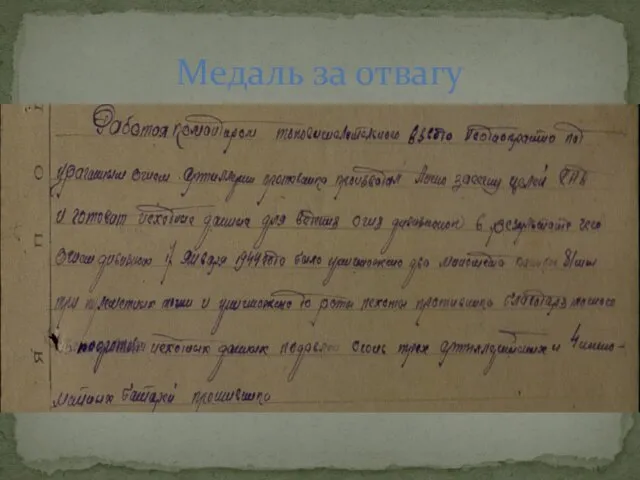 Медаль за отвагу
Работая командиром топовычислительного взвода неоднократно под
ураганным огнем артиллерии противника производил лично засечку целей
и готовит исходные данные для ведения огня дивизионом в результате чего
огнем дивизиона 17 января 1944 года было уничтожено два
три пулеметных точки и уничтожено до роты пехоты противника благодаря
подготовки исходных данных подавлен огонь трех артиллерийских и 4 мино-
метных батарей противника